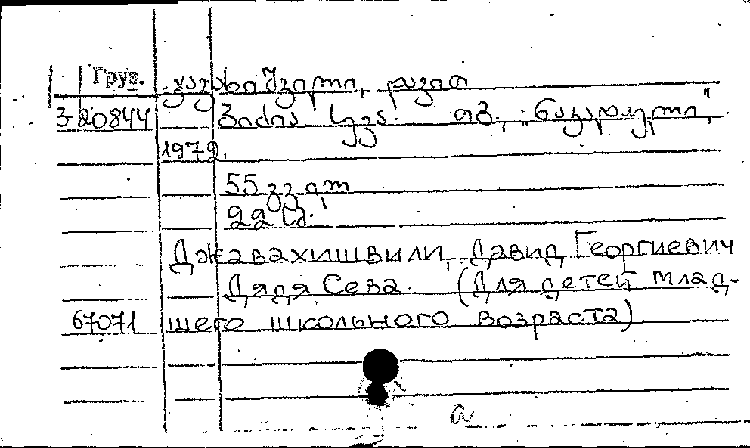 Груз. ჯავახიშვილი, დავით
3-20844 ბიძია სევა. თბ., „ნაკადული",
1979.
55 გვ.
22 სმ.
Джавахишвили, Давид Георгиевич
Дядя Сева. (Для детей млад-
67071 шего школьного возраста)
a